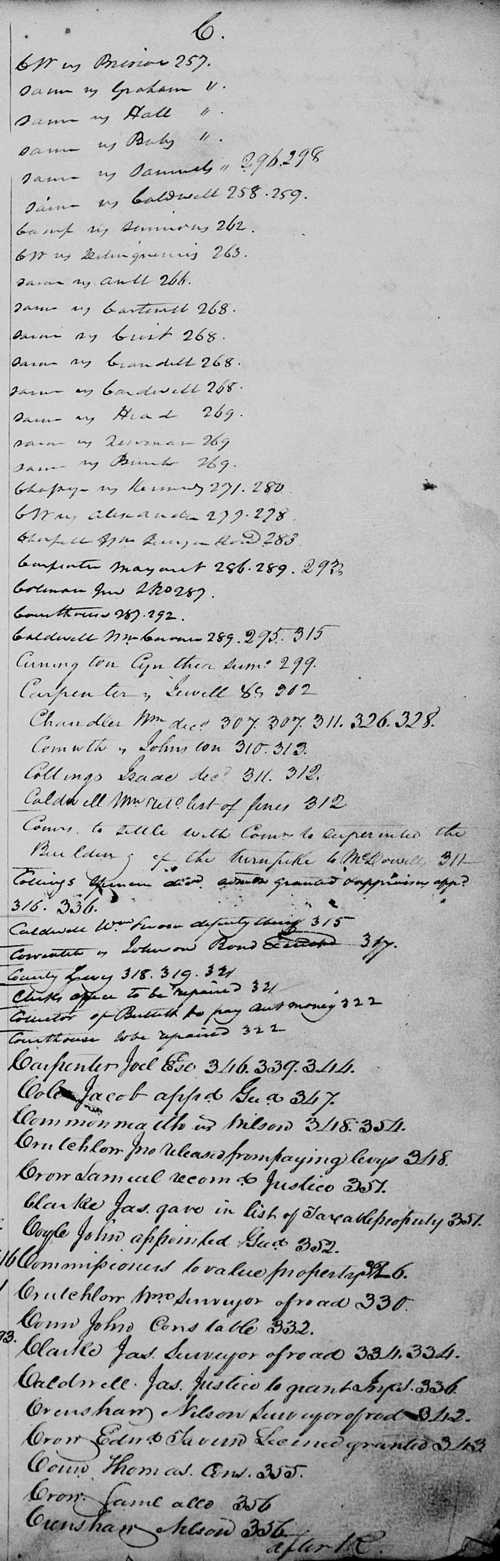 C.
CW vs Briscoe 257.
Same vs Graham "
Same vs Hall "
Same vs "
Same vs Samuels " 296.298
Same vs Caldwell 258.259.
Camp vs Simmons 262.
CW vs Delinquents 263.
Same vs Ault 266.
Same vs Cartmill 268.
Same vs Crist 268.
Same vs Crandell 268.
Same vs Cardwell 268.
Same vs Head 269.
Same vs Newman 269
Same vs 269.
vs Kennedy 271.280
CW vs Alexander 277.278
Road 283
Carpenter Margaret 286.289.293
Coleman Jno 287.
Courthouse 287.292.
Caldwell Wm 289.295.315
Cunington Cynthia 299.
Carpenter vs Sewell 302
Chandler Wm decd 307.307.311.326.328.
Comwth vs Johnston 310.313.
Collings Isaac decd 311.312.
Caldwell Wm list of fines 312
Comrs to settle with Comrs to superintend the
Building of the turnpike to McDowell 311
Collings decd. granted & appraisers appd
316.336.
Caldwell Wm deputy 315
vs Johnson Road 317.
County Levy 318.319.321
Clerks office to be repaired 321
Collector of to pay money 322
Courthouse to be repaired 322
Carpenter Joel Esq 346.339.344.
Cole Jacob appd Gua 347.
Commonwealth vs Wilson 348.354.
Crutchlow Jno released from paying levys 348.
Crow Samuel recomd Justice 351.
Clarke Jas. gave in list of Taxable property 351.
Coyle John appointed Gua 352.
Commissioners to value property 326.
Crutchlow Wm Surveyor of road 330.
John Constable 332.
Clarke Jas. Surveyor of road 334.334.
Caldwell Jas. Justice to grant 336.
Crenshaw Nelson Surveyor of rod 342.
Crow Edwd Tavern Licence granted 343
Thomas. 355.
Crow Saml 356
Crenshaw Nelson 356
after